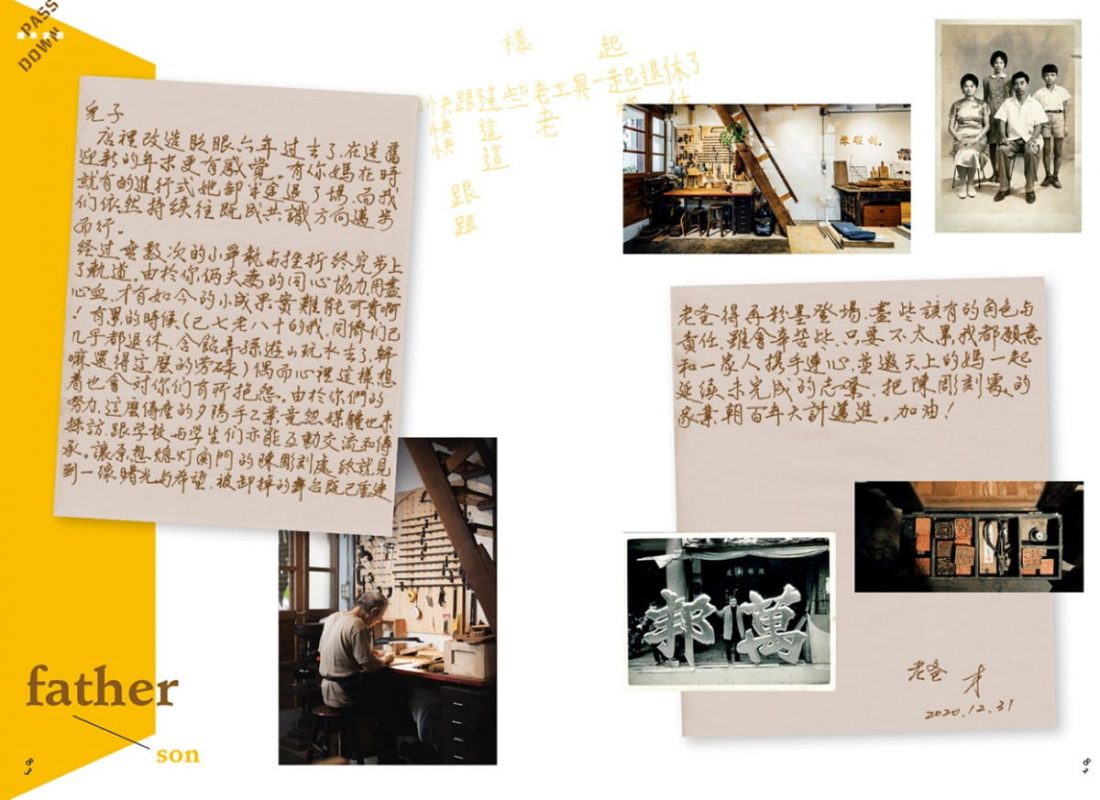 PASS
DOWN
兒子
店裡改造眨眼六年過去了,在送舊
迎新的年末更有感覺。有你媽在時
就有的進行式她卻半途退了場,而我
們依然持續往既成共識方向邁步
而行。
經过無数次的小爭執与挫折終究步上
了軌道。由於你俩夫妻的同心協力,用盡
心血,才有如今的小成果實難能可貴啊
!有累的時候(已七老八十的我,同儕们已
几乎都退休、含飴弄孫、遊山玩水去了,幹
嘛還得這麼的劳碌)偶而心裡這樣想
着也會对你们有所抱怨。由於你們的
努力,這麼傳産的夕陽手工業竟然媒體也來
採訪,跟学校与学生们亦能互動交流和傳
承。讓原想熄灯関門的陳彫刻處終就見
到一線曙光与希望,被卸掉的舞台既已重建
樣 起
快跟這些老工具一起退休了
快 這 老
快 這
跟
跟
老爸得再粉墨登場,盡些該有的角色与
責任,雖會辛苦些,只要不太累我都願意
和一家人携手連心,並邀天上的媽一起
延续未完成的志業,把陳彫刻處的
家業,朝百年大計邁進。加油!
萬
邦
老爸 才
2020.12.31
father
son
83
82